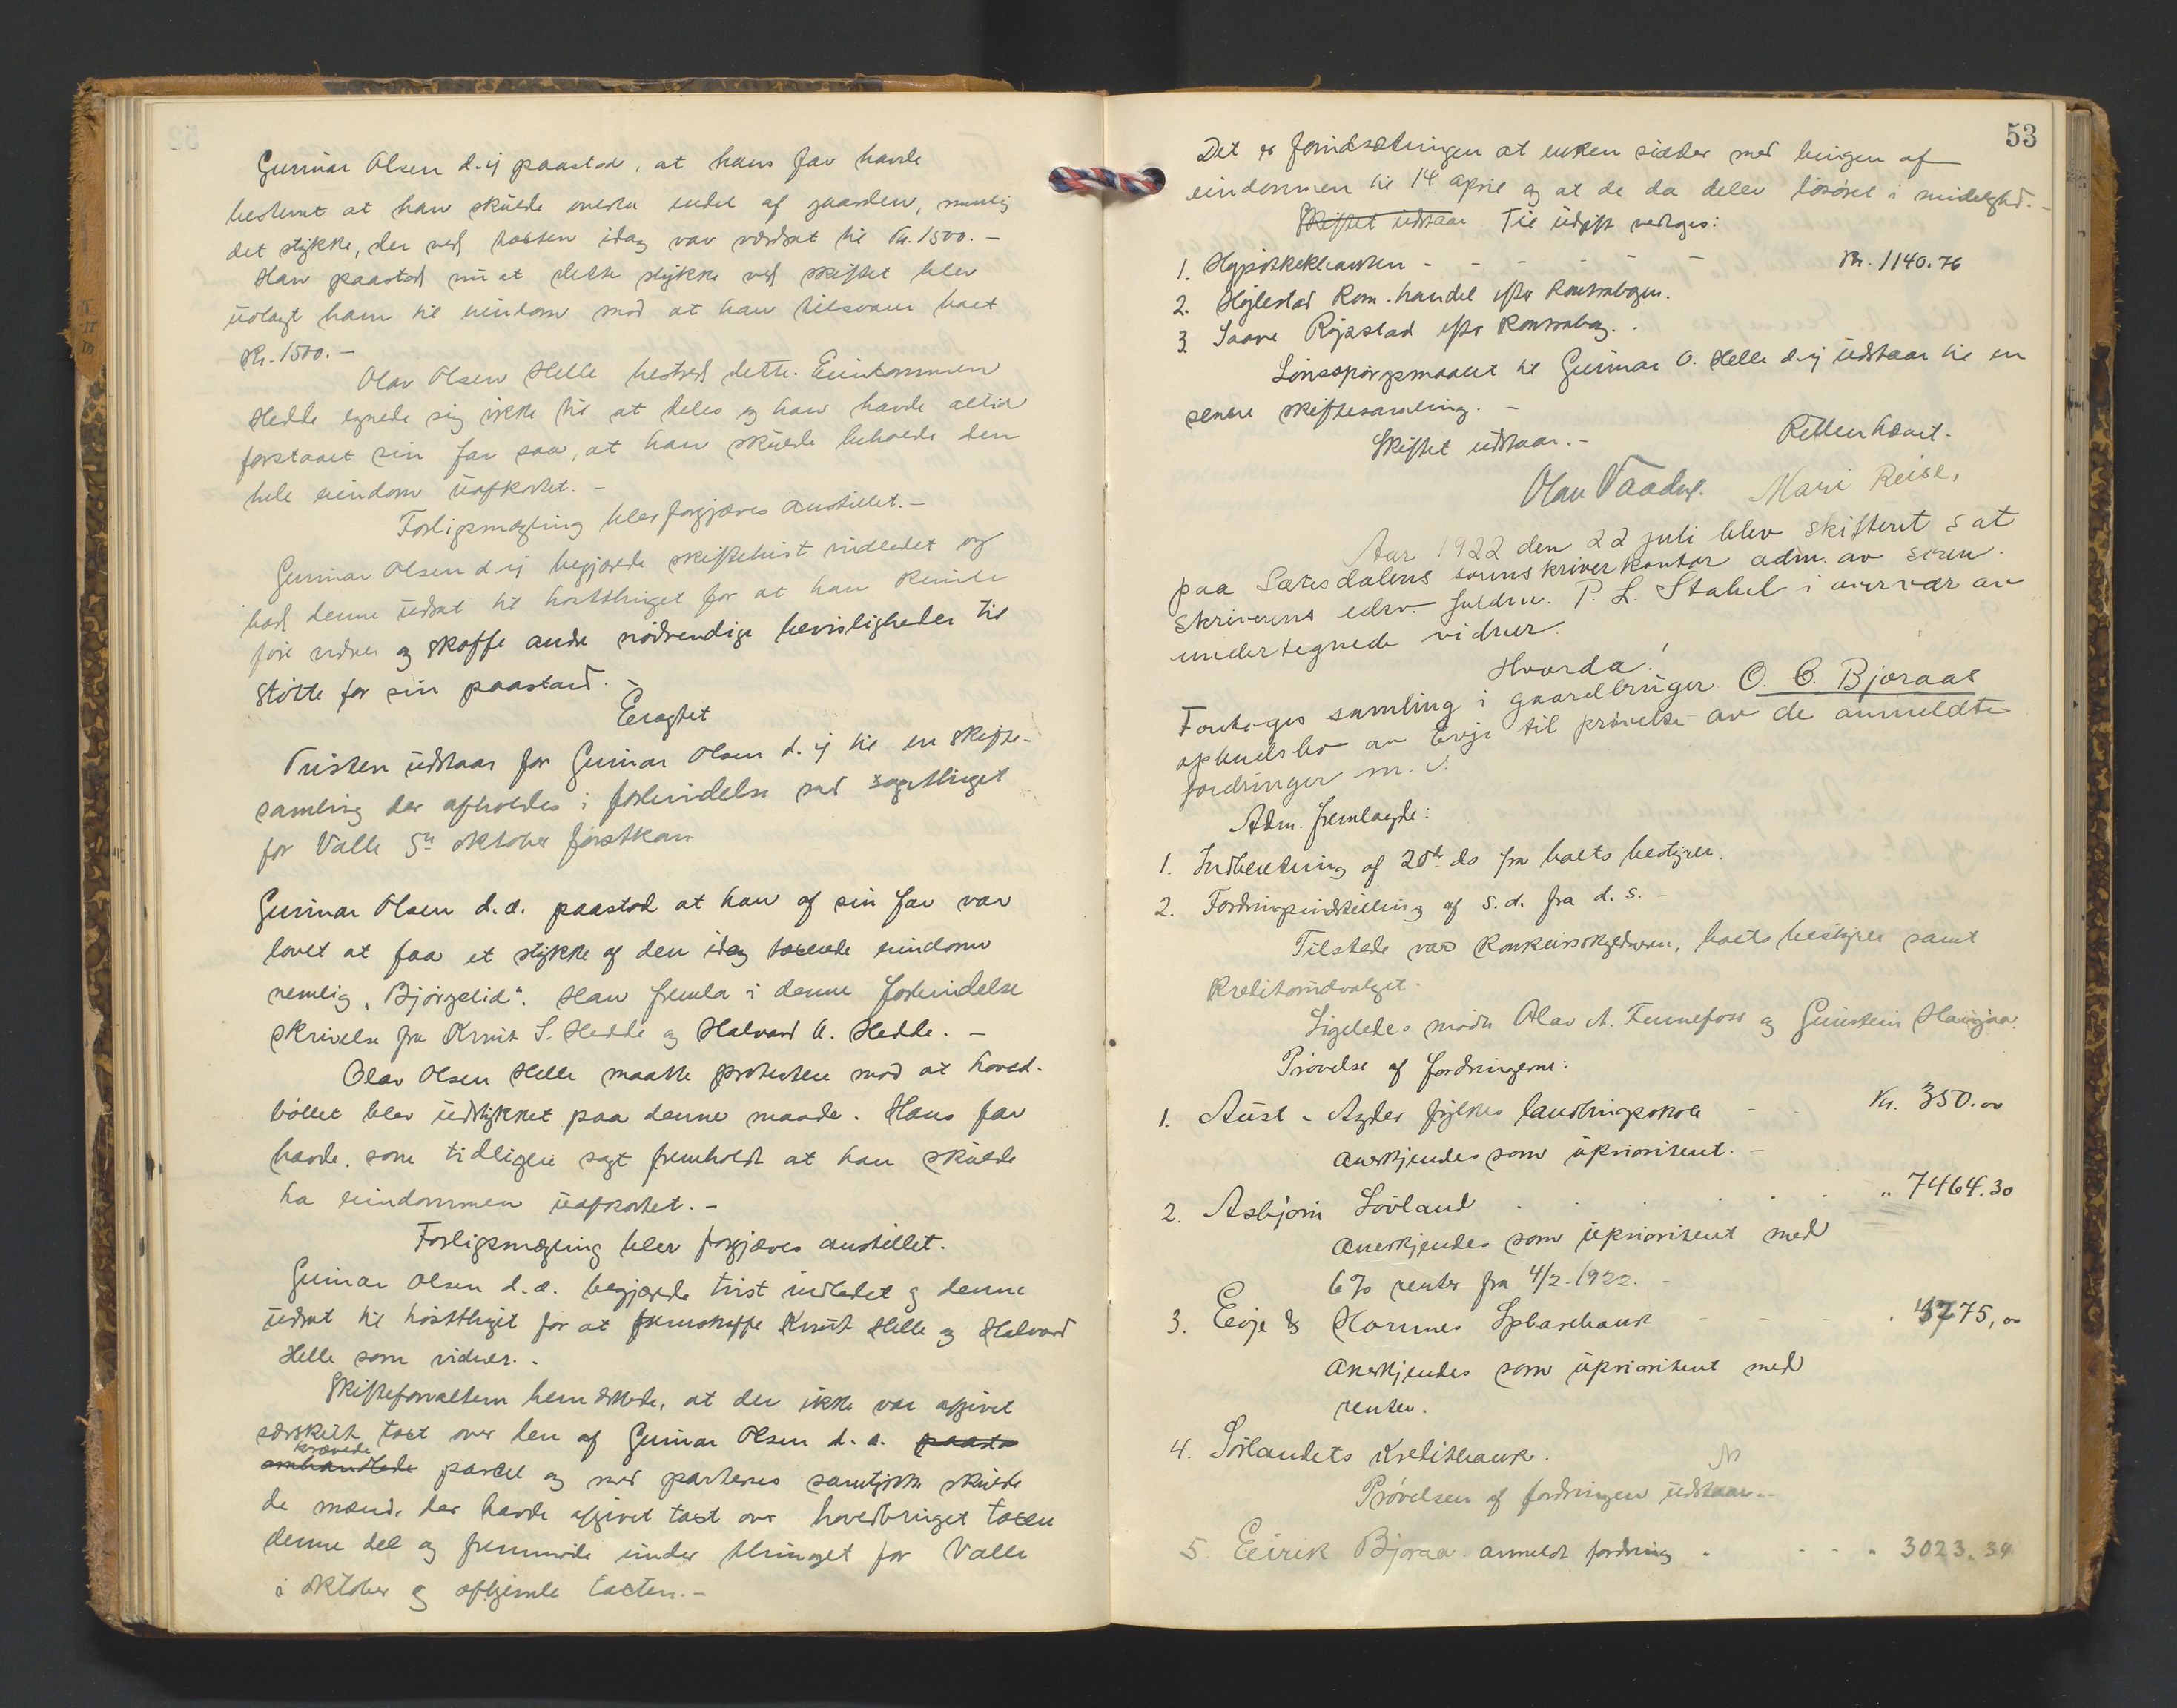 Gunnar Olsen d. y paastod, at hans far havde
bestemt at han skulde overta endel af gaarden, nemlig
det stykke, der ved taksten idag var værdsat til Kr. 1500.-
Han paastod nu at dette stykke ved skiftet blev
utlagt ham til eiendom mod at han tilsvarer boet
Kr. 1500.-
Olav Olsen Helle bestred dette. Eiendommen
Hedde egnede sig ikke til at deles og han havde altid
forstaaet sin far saa, at han skulde beholde den
hele eiendom uafkortet.-
Forligsmægling blev forgjæves anstillet.-
Gunnar Olsen d y begjærede skiftetvist indledet og
bad denne udsat til høstthinget for at han kunde
føre vidner og skaffe andre nødvendige bevisligheder til
støtte for sin paastand.-
Eragtet
Tvisten udstaar for Gunnar Olsen d. y til en skifte-
samling der afholdes i forbindelse med sagethinget
for Valle 5te oktober førstkom.
Gunnar Olsen d.æ. paastod at han af sin far var
lovet at faa et stykke af den idag taxerede eiendom
nemlig "Bjørgelid". Han fremla i denne forbindelse
skrivelse fra Knut S. Hedde og Halvard A. Hedde.-
Olav Olsen Helle maatte protestere mod at hoved-
bøllet blev udstykket paa denne maade. Hans far
havde, som tidligere sagt fremholdt at han skulde
ha eiendommen uafkortet.-
Forligsmægling blev forgjæves anstillet.
Gunnar Olsen d.æ. begjærede tvist indledet og denne
udsat til høstthinget for at fremskaffe Knut Helle og Halvard
Helle som vidner.-
Skifteforvalteren bemærkede, at der ikke var afgivet
særskilt taxt over den af Gunnar Olsen d. æ. paasta
krævede
omhandlede parcel og med parternes samtykke skulde
de mænd, der havde afgivet taxt over hovedbruget taxere
denne del og fremmøde under thinget for Valle
i oktober og afhjemle taxten.-
53
Det er forudsætningen at enken sidder med brugen af
eiendommen til 14 april og at de da deler løsøret i mindelighed.-
Skiftet udstaar Til udgift vedtoges:
1. Hypothekbanken - - - - - - Kr. 1140.76
2. Højlestad Kom. handel efter kontrabogen.
3. Saave Rygstad efter kontrabog.
Lønsspørgsmaalet til Gunnar O. Helle d y udstaar til en
senere skiftesamling.-
Skiftet udstaar.-
Retten hævet.
Olav Vaadny. Mari Reise,
Aar 1922 den 22 juli blev skifteret sat
paa Sætesdalens sorenskriverkontor adm. av soren-
skriverens edsv. fuldm. P. L. Stabel i overvær av
undertegnede vidner.
Hvorda!
Foretoges samling i gaardbruger O. C. Bjoraas
opbudsbo av Evje til prøvelse av de anmeldte
fordringer m. v.
Adm. fremlagde:
1. Indberetning af 20de ds fra boets bestyrer.
2. Fordringsindstilling af s.d. fra d. s.-
Tilstede var konkursskyldneren, boets bestyrer samt
kreditorudvalget.
Ligeledes mødte Olav A. Fennefoss og Gunstein Haugaa.
Prøvelse af fordringerne:
1. Aust-Agder fylkes landbrugsskole - - Kr. 350.00
Anerkjendes som uprioritert.-
2. Asbjørn Lövland . . . . . " 7464.30
Anerkjendes som uprioritert med
6% renter fra 4/2-1922.-
3. Evje & Hornnes Sparebank - - - 4275,00
Anerkjendes som uprioritert med
renter.
4. Sörlandets Kreditbank.
Prøvelsen af fordringen udstaar.-
5 Eirik Bjoraa anmeldt fordring - - - - 3023.34